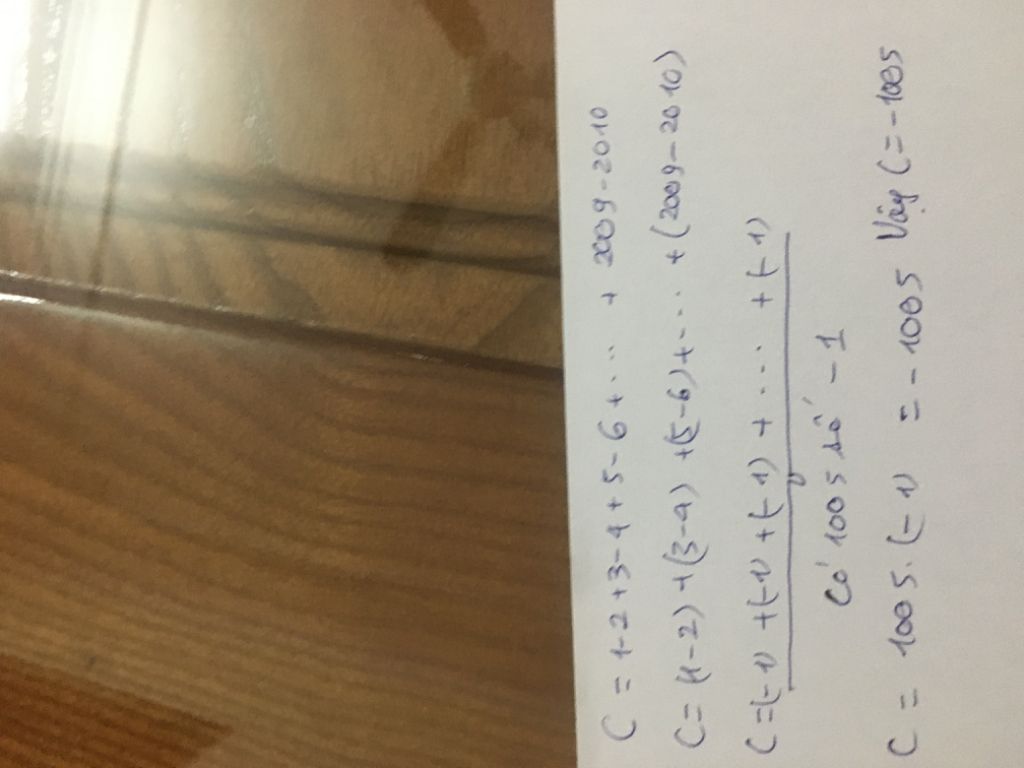 C = 1-2+3-4+5-6+... + 2009-2010
C = (1-2)+(3-4)+(5-6)+... +(2009-2010)
C = (-1)+(-1)+(-1)+... +(-1)
Có 1005 số -1
C = 1005.(-1) = -1005 Vậy C = -1005